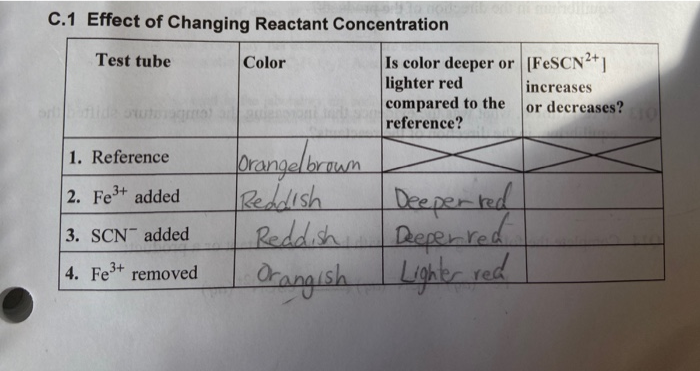 C.1 Effect of Changing Reactant Concentration
Test tube
Color
Is color deeper or
lighter red
compared to the
reference?
[FeSCN²⁺]
increases
or decreases?
1. Reference
Orange/brown
2. Fe³⁺ added
Reddish
Deeper red
3. SCN⁻ added
Reddish
Deeper red
4. Fe³⁺ removed
Orangish
Lighter red